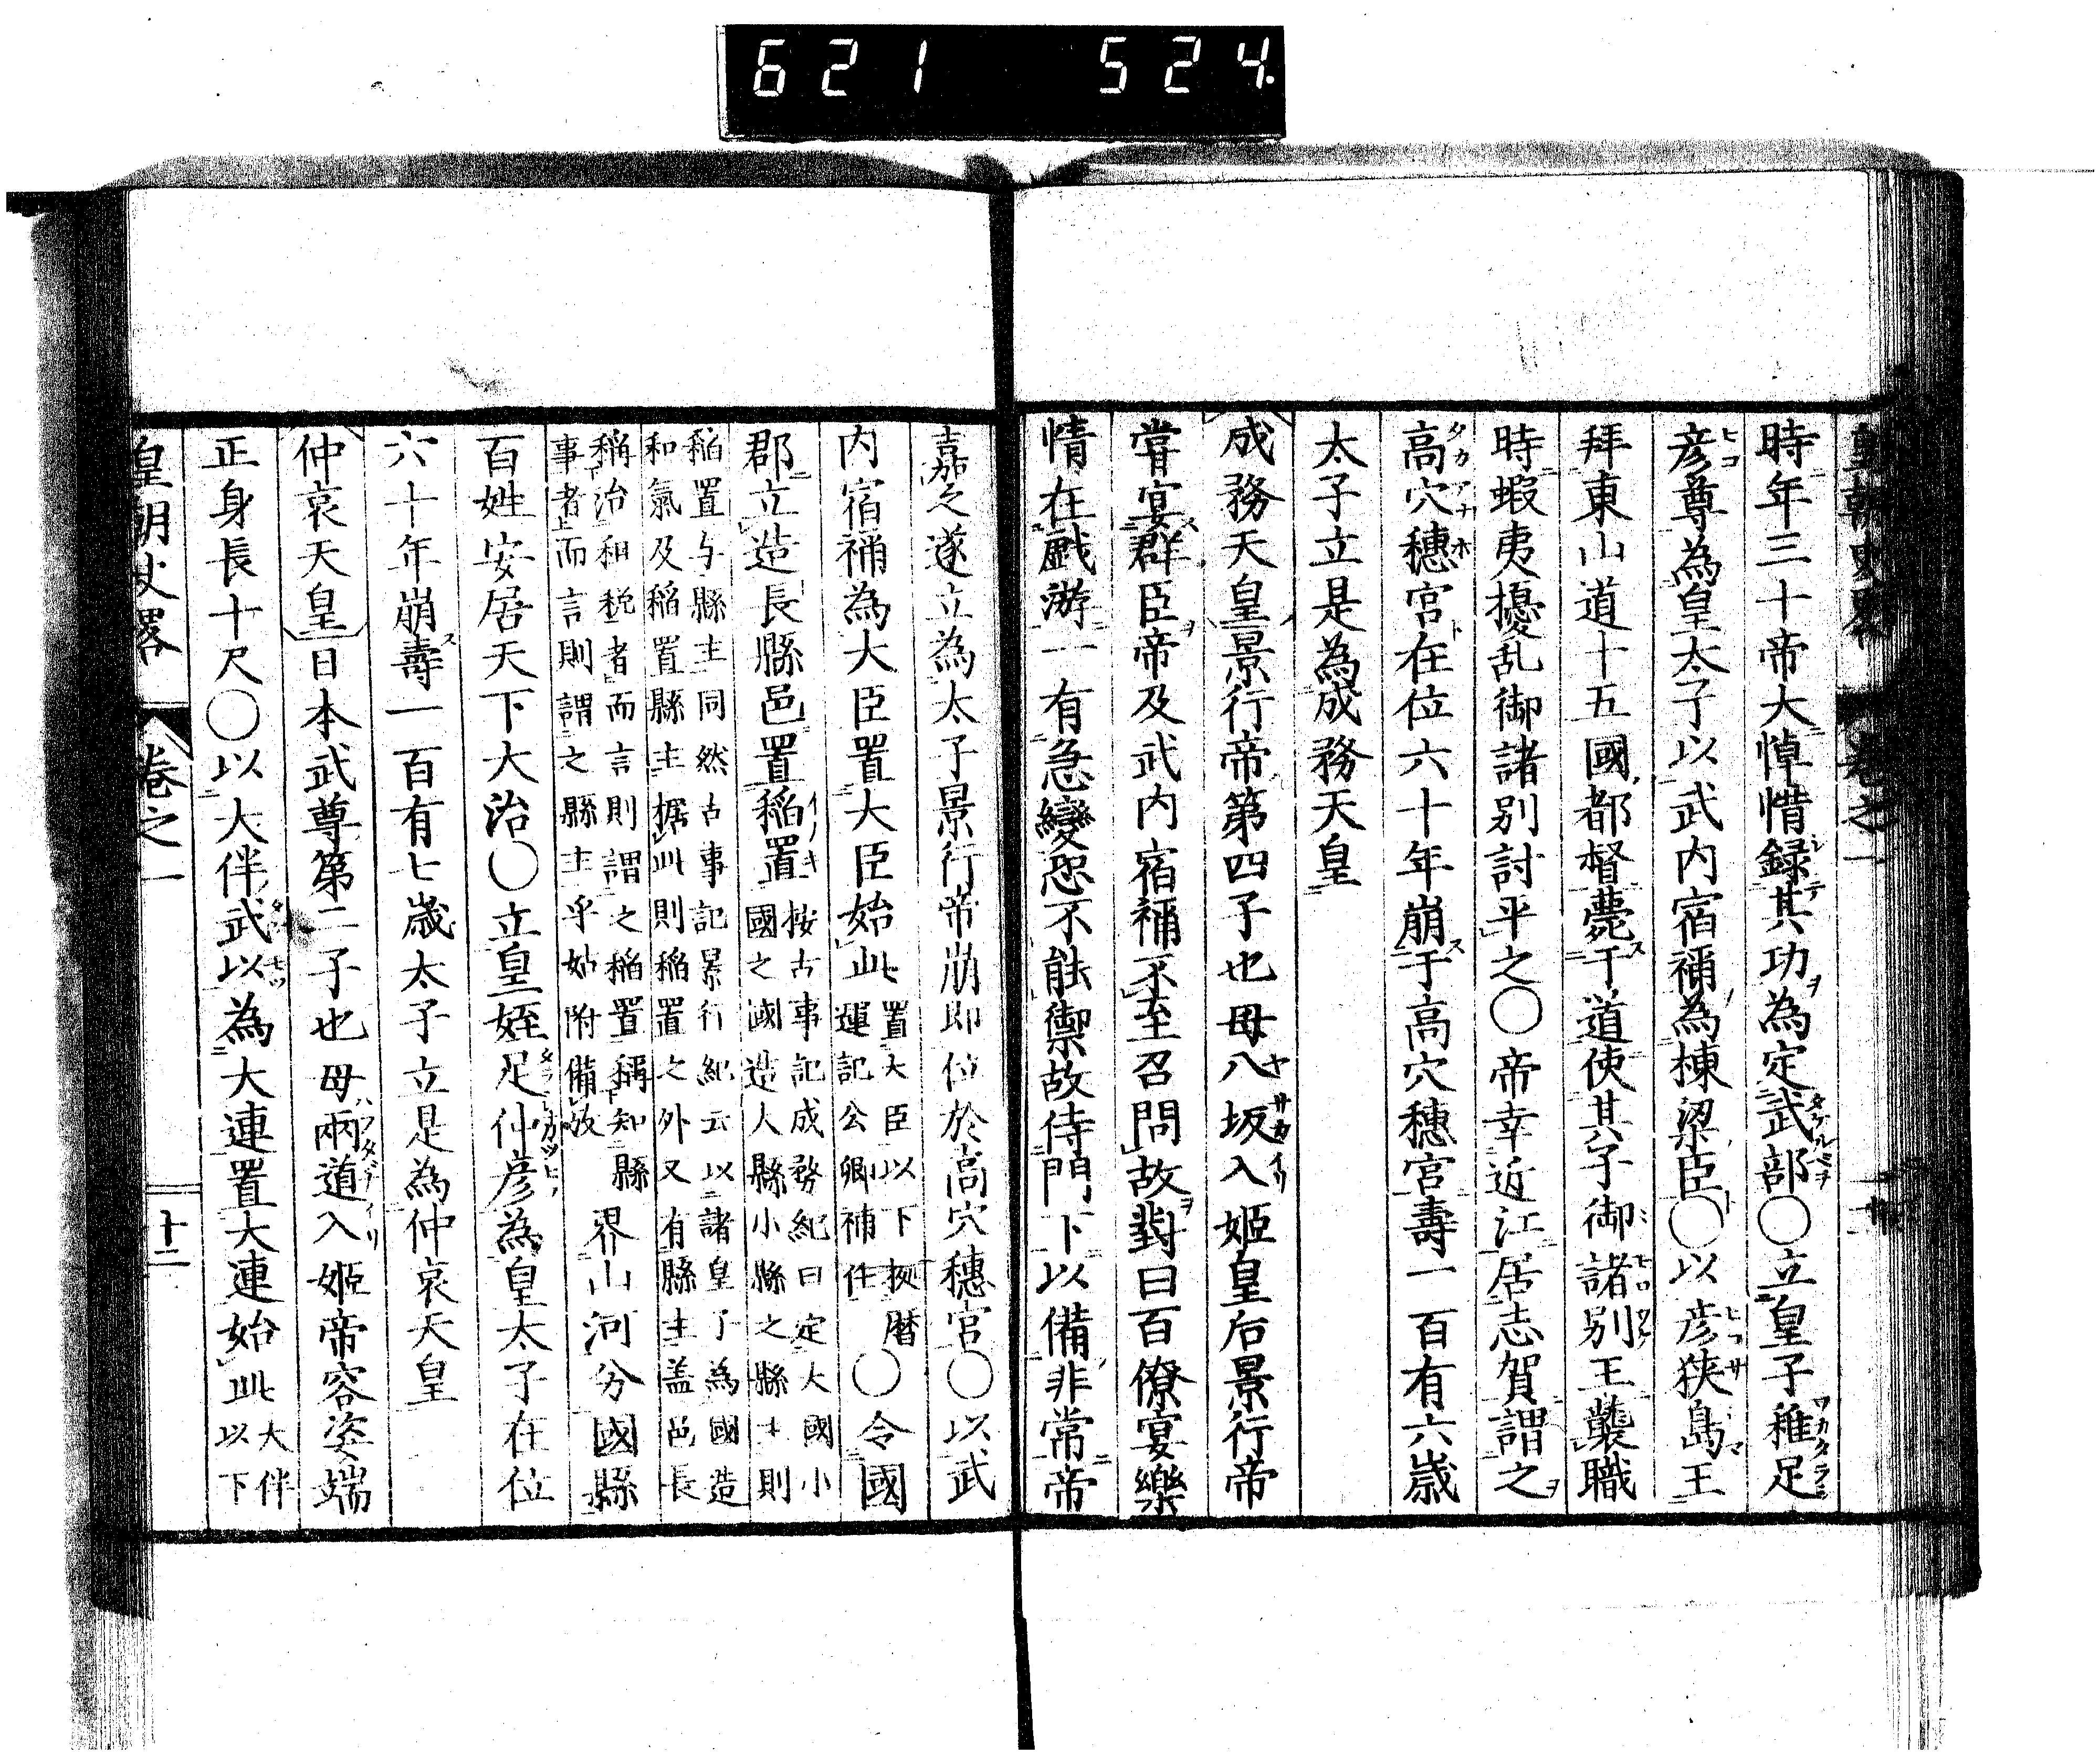 621 524.
時年三十帝大悼惜録其功為定武部○立皇子稚足
彦尊為皇太子以武内宿禰為棟梁臣○以彦狭島王
拜東山道十五國都督薨于道使其子御諸別王襲職
時蝦夷擾乱御諸別討平之○帝幸近江居志賀謂之
高穴穗宮在位六十年崩于高穴穗宮壽一百有六歳
太子立是為成務天皇
成務天皇景行帝第四子也母八坂入姫皇后景行帝
嘗宴群臣帝及武内宿禰不至召問故對曰百僚宴樂
情在戯游一有急變恐不能禦故侍門下以備非常帝
嘉之遂立為太子景行帝崩即位於高穴穗宮○以武
内宿禰為大臣置大臣始此置大臣以下拠暦運記公卿補任○令國
郡立造長縣邑置稲置按古事記成務紀曰定大國小國之國造大縣小縣之縣主則
稲置与縣主同然古事記景行紀云以諸皇子為國造
和氣及稲置縣主據此則稲置之外又有縣主盖邑長
稱治租税者而言則謂之稲置稱知縣
事者而言則謂之縣主乎姑附備放
界山河分國縣
百姓安居天下大治○立皇姪足仲彦為皇太子在位
六十年崩壽一百有七歳太子立是為仲哀天皇
仲哀天皇日本武尊第二子也母兩道入姫帝容姿端
正身長十尺○以大伴武以為大連置大連始此大伴以下
皇朝史畧 卷之一 十二